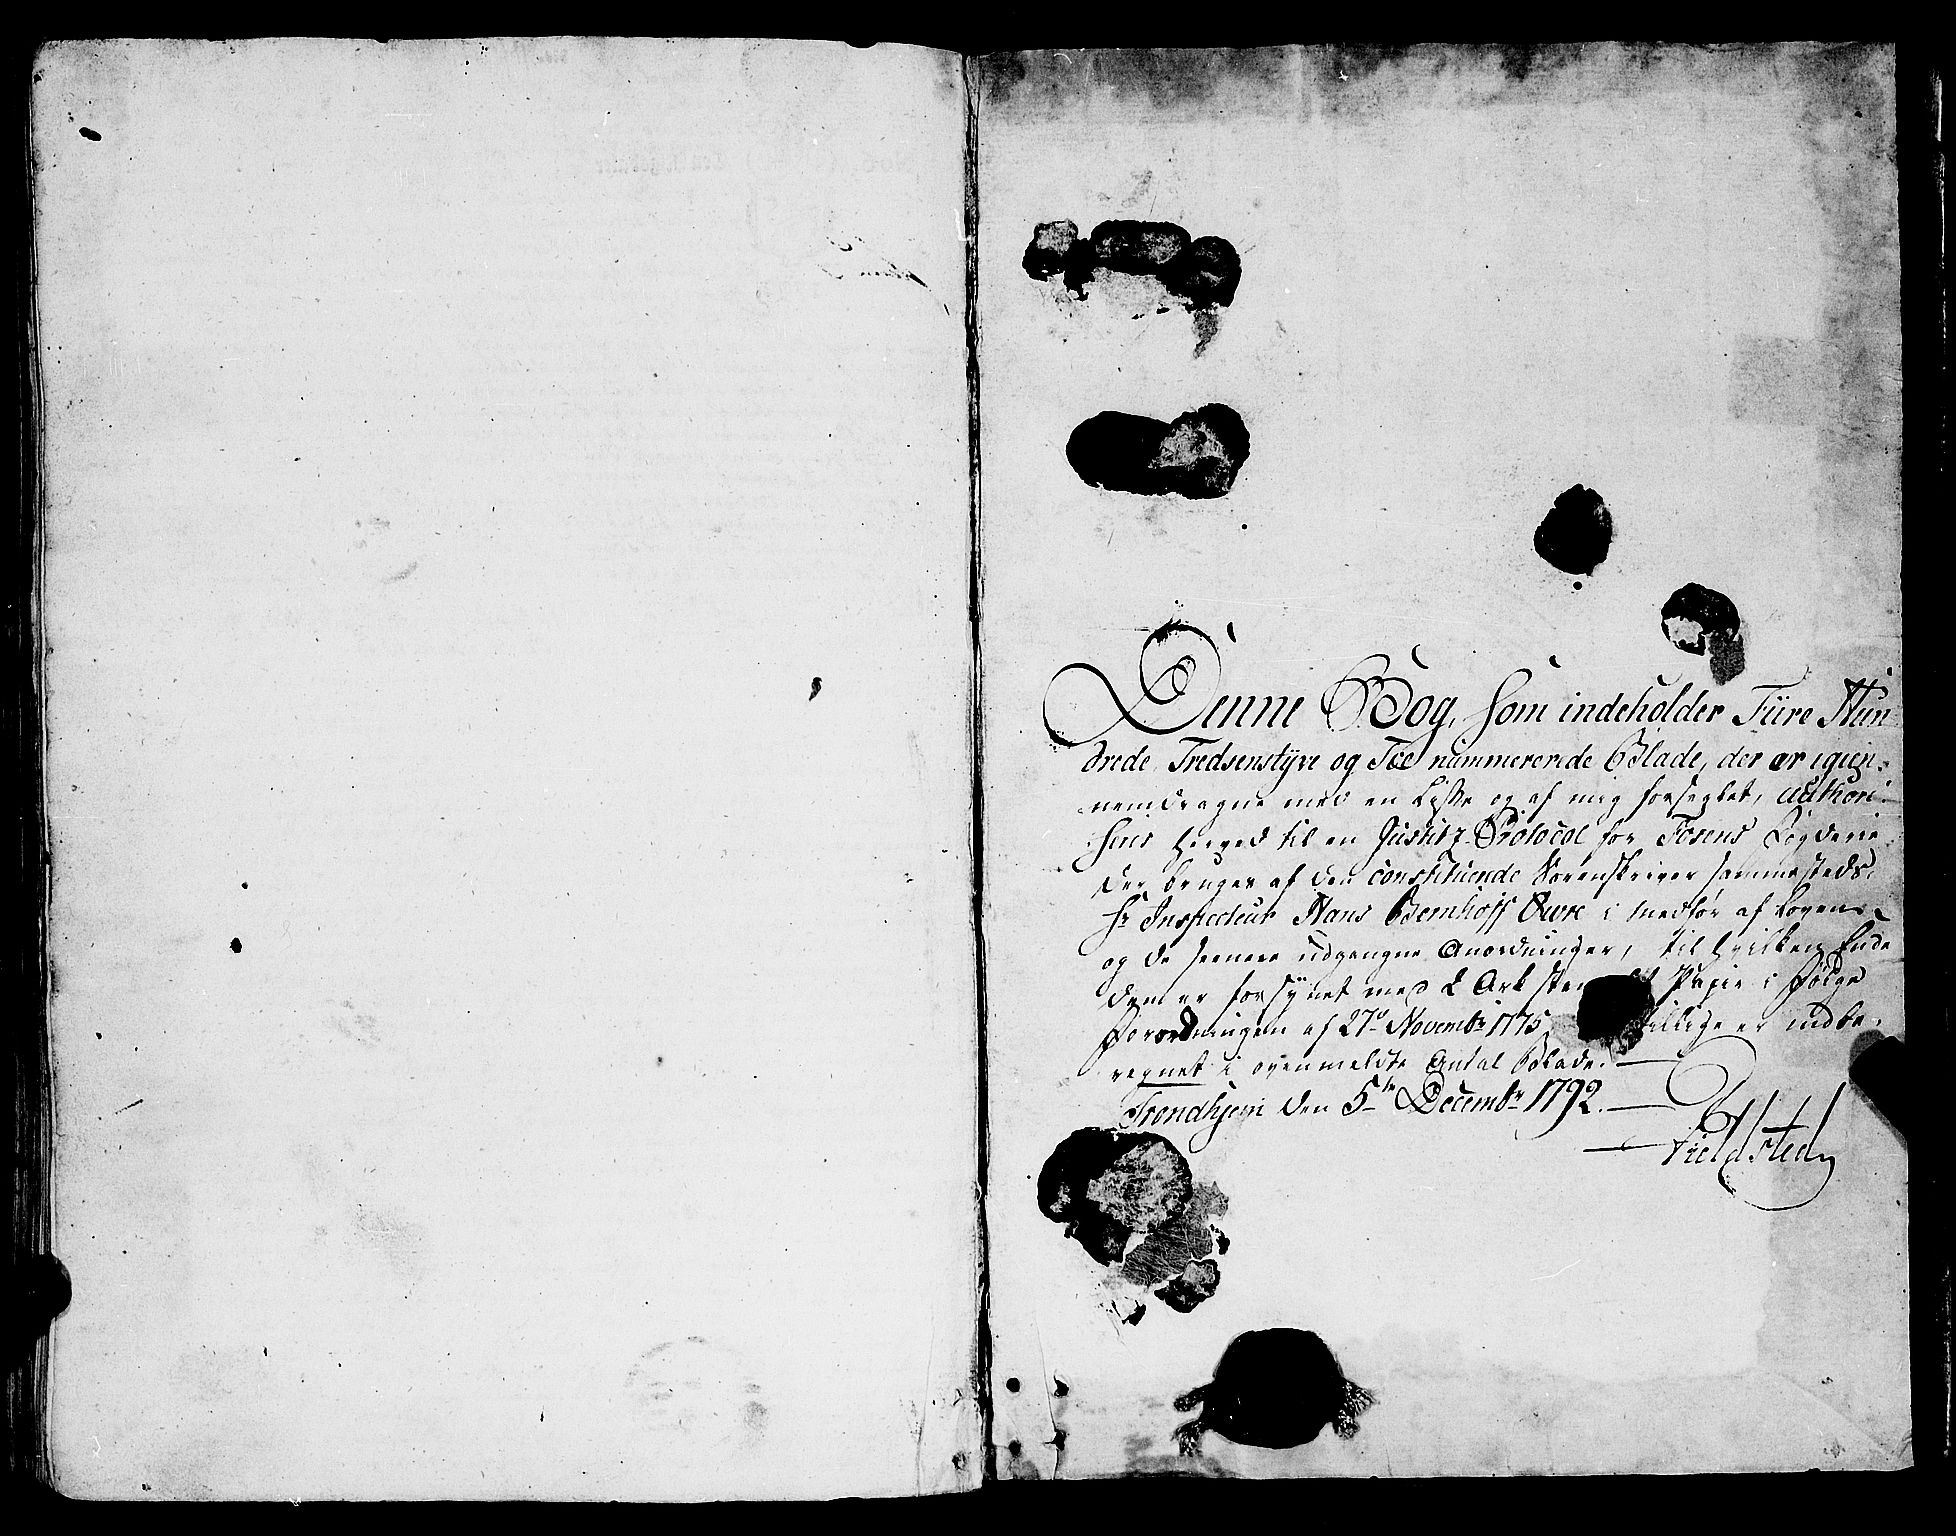 Denne Bog, som indeholder Fiire Hun-
drede, Tredsenstÿve og Toe nummererede Blade, der er igien-
nemdragne med en Lisse og af mig forseglet, authori-
seres herved til en Justitz-Protocol for Fosens Fogderie
der bruges af den constituerede Sorenskriver sammesteds.
Hr Inspecteur Hans Bernhoff Øwre i medfør af Loven
og de seenere udgangne Anordninger, til hvilken Ende
den er forsÿnet med 2 Ark Papir i Følge
Forordningen af 27de Novembr 1775, tillige er indbe-
regnet i ovenmeldte Antal Blade.
Trondhjem den 5te Decembr 1792.
Fieldsted